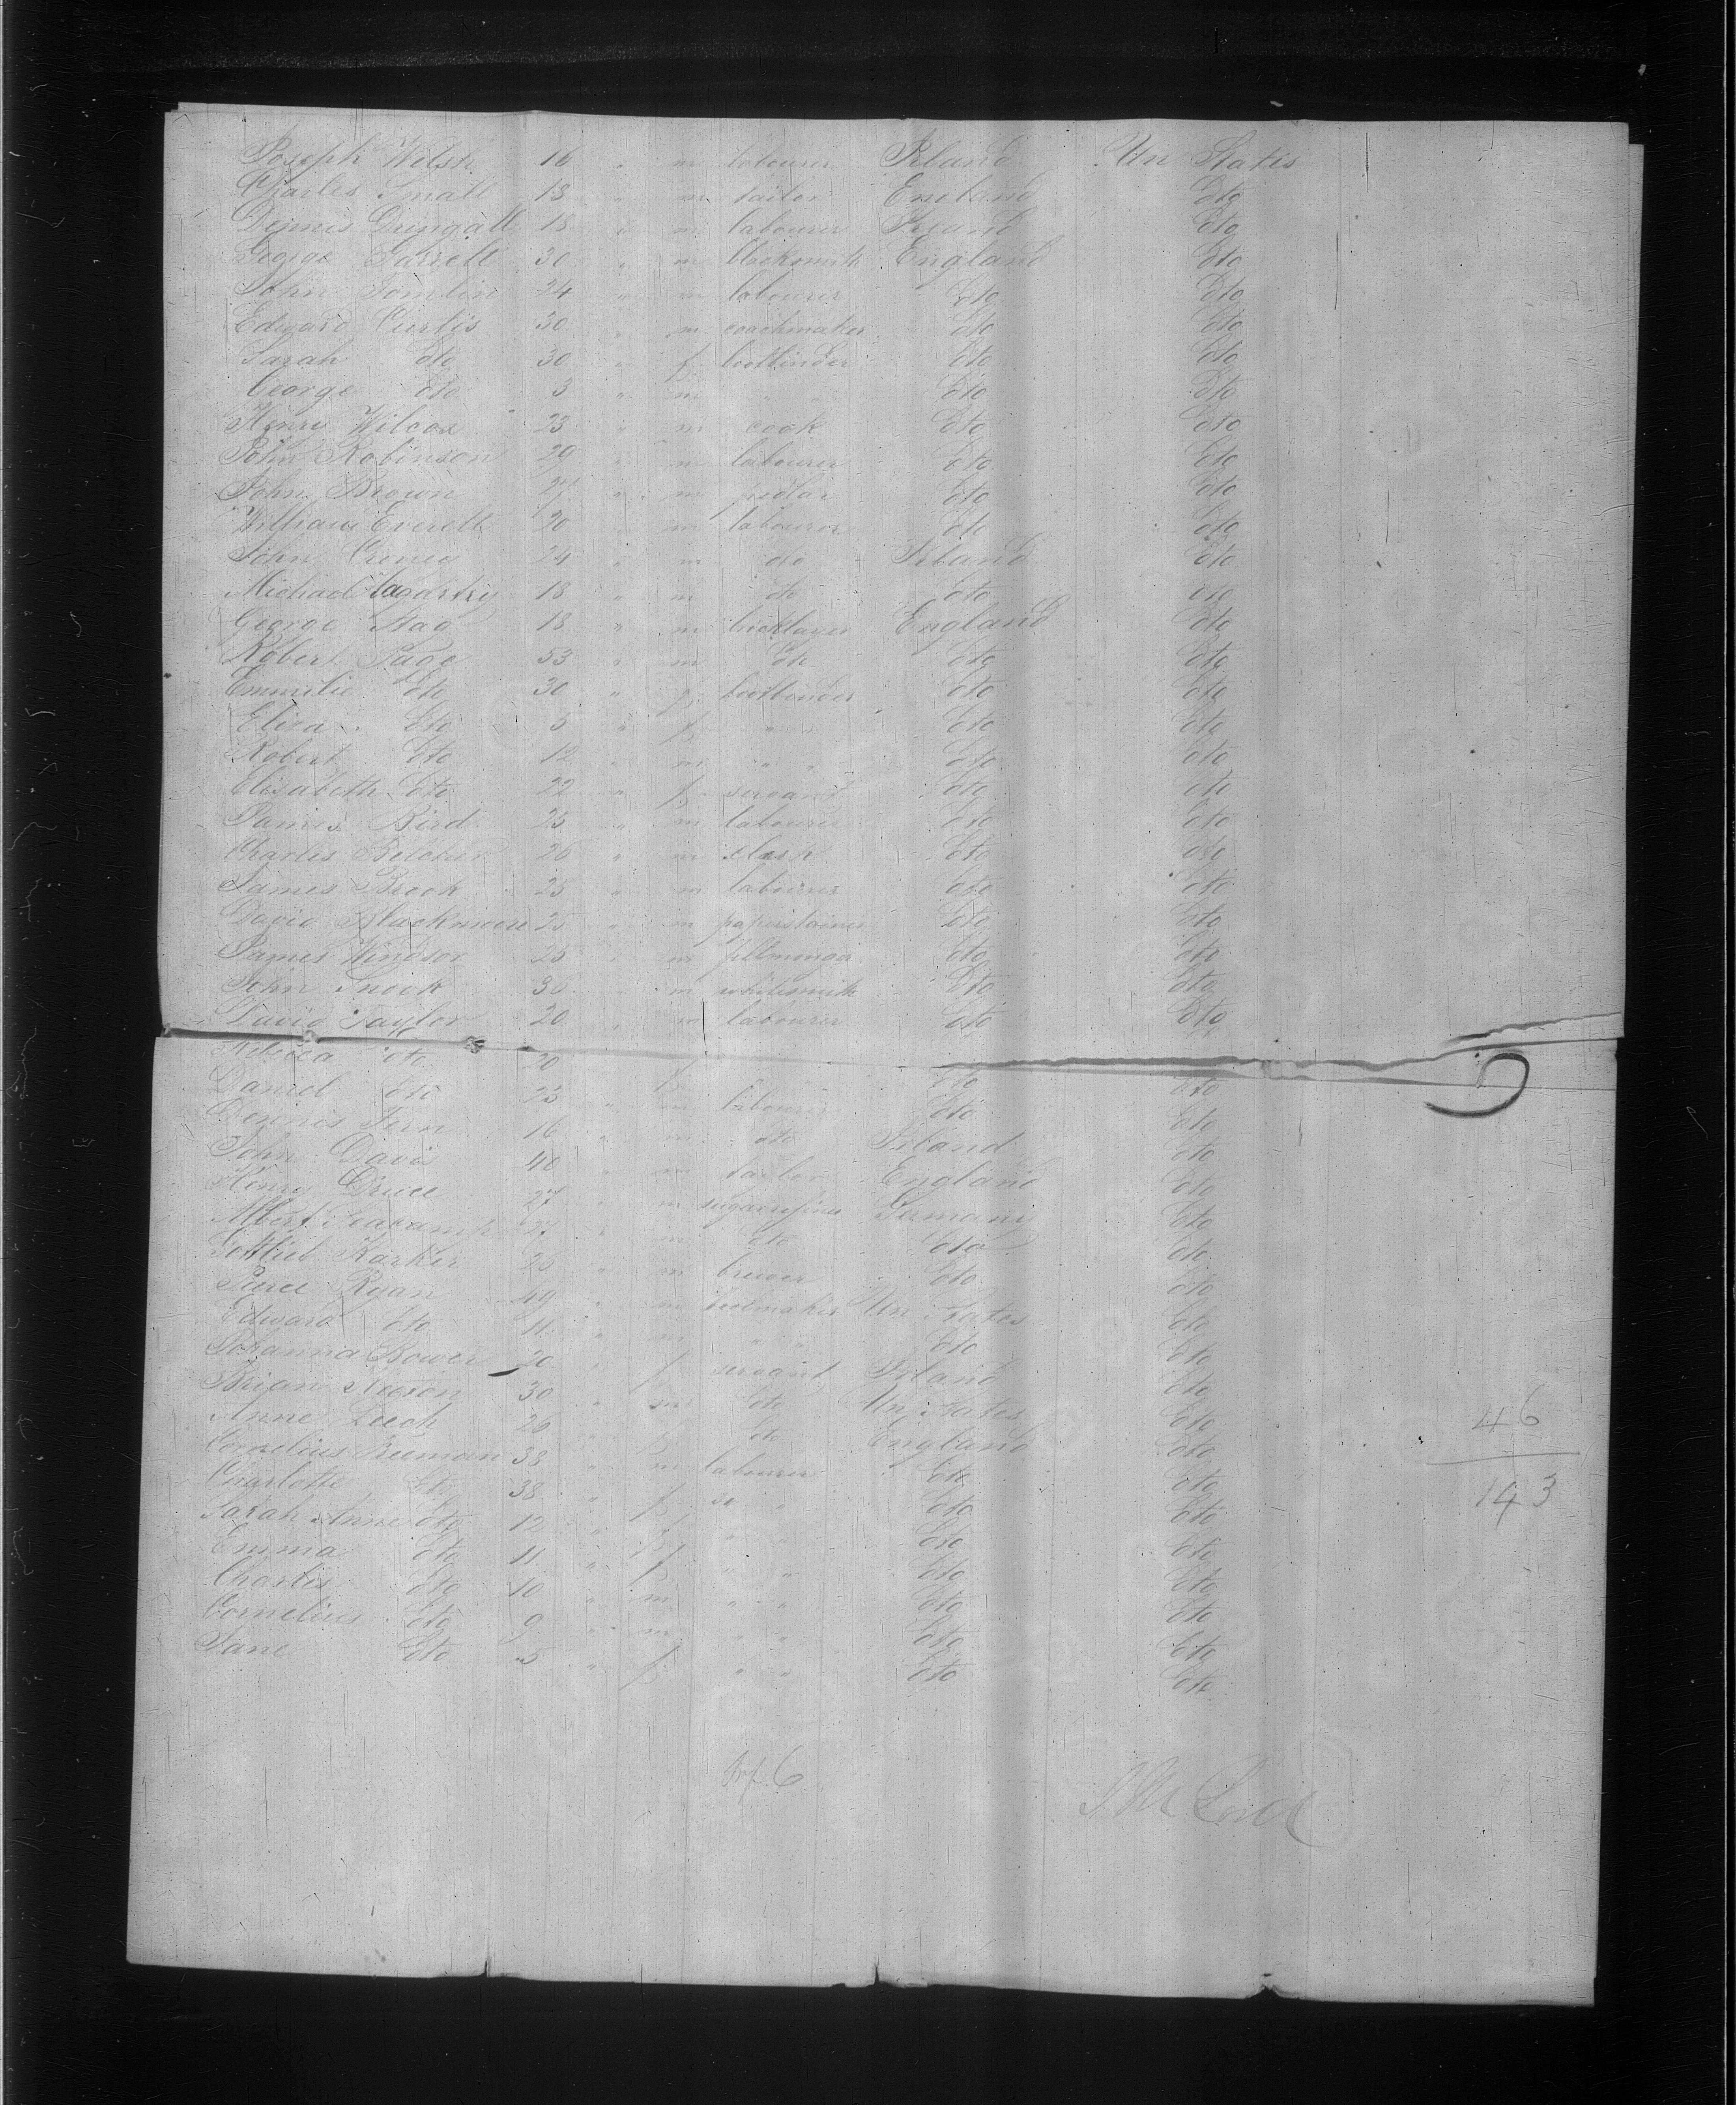 Joseph Welsh 16 " m labourer Irland Un States
Charles Small 18 " m tailor England dto
Dennis Dringall 18 " m labourer Irland dto
George Garrett 30 " m blacksmith England dto
John Tomlin 24 " m labourer dto dto
Edward Curtis 30 " m coachmaker dto dto
Sarah dto 30 " f bootbinder dto dto
George dto 3 " m " " dto dto
Henry Wilcox 23 " m cook dto dto
John Robinson 29 " m labourer dto dto
John Brown 27 " m pedlar dto dto
William Everett 20 " m labourer dto dto
John 24 " m dto Irland dto
Michael 18 " m dto dto dto
George Stag 18 " m bricklayer England dto
Robert Page 53 " m dto dto dto
Emmilie dto 30 " f bootbinder dto dto
Eliza dto 5 " f " " dto dto
Robert dto 12 " m " " dto dto
Elisabeth dto 22 " f servant dto dto
James Bird 25 " m labourer dto dto
Charles Belcher 26 " m clark dto dto
James Brook 25 " m labourer dto dto
David Blackmoore 25 " m paperstainer dto dto
James Windsor 25 " m fellmonger dto dto
John Snook 30 " m whitesmith dto dto
David Taylor 20 " m labourer dto dto
Rebecca dto 20 f dto dto
Daniel dto 23 " m labourer dto dto
Dennis Fern 16 " m dto Irland dto
John Davis 40 " m tailor England dto
Henry Druce 27 " m sugarrefiner Germany dto
Albert 27 " m dto dto dto
Gottlieb Karker 25 " m brewer dto dto
Pierce Ryan 49 " m bootmaker Un States dto
Edward dto 11 " m " " dto dto
Johanna Bower 20 " f servant Irland dto
Brian Nixon 30 " m dto Un States dto
Anne Leech 26 " f dto England dto
Cornelius Beeman 38 " m labourer dto dto
Charlotte dto 38 " f " dto dto
Sarah Anne dto 12 " f " " dto dto
Emma dto 11 " f " " dto dto
Charles dto 10 " m " " dto dto
Cornelius dto 9 " m " " dto dto
Jane dto 5 " f " " dto dto
46
143
6